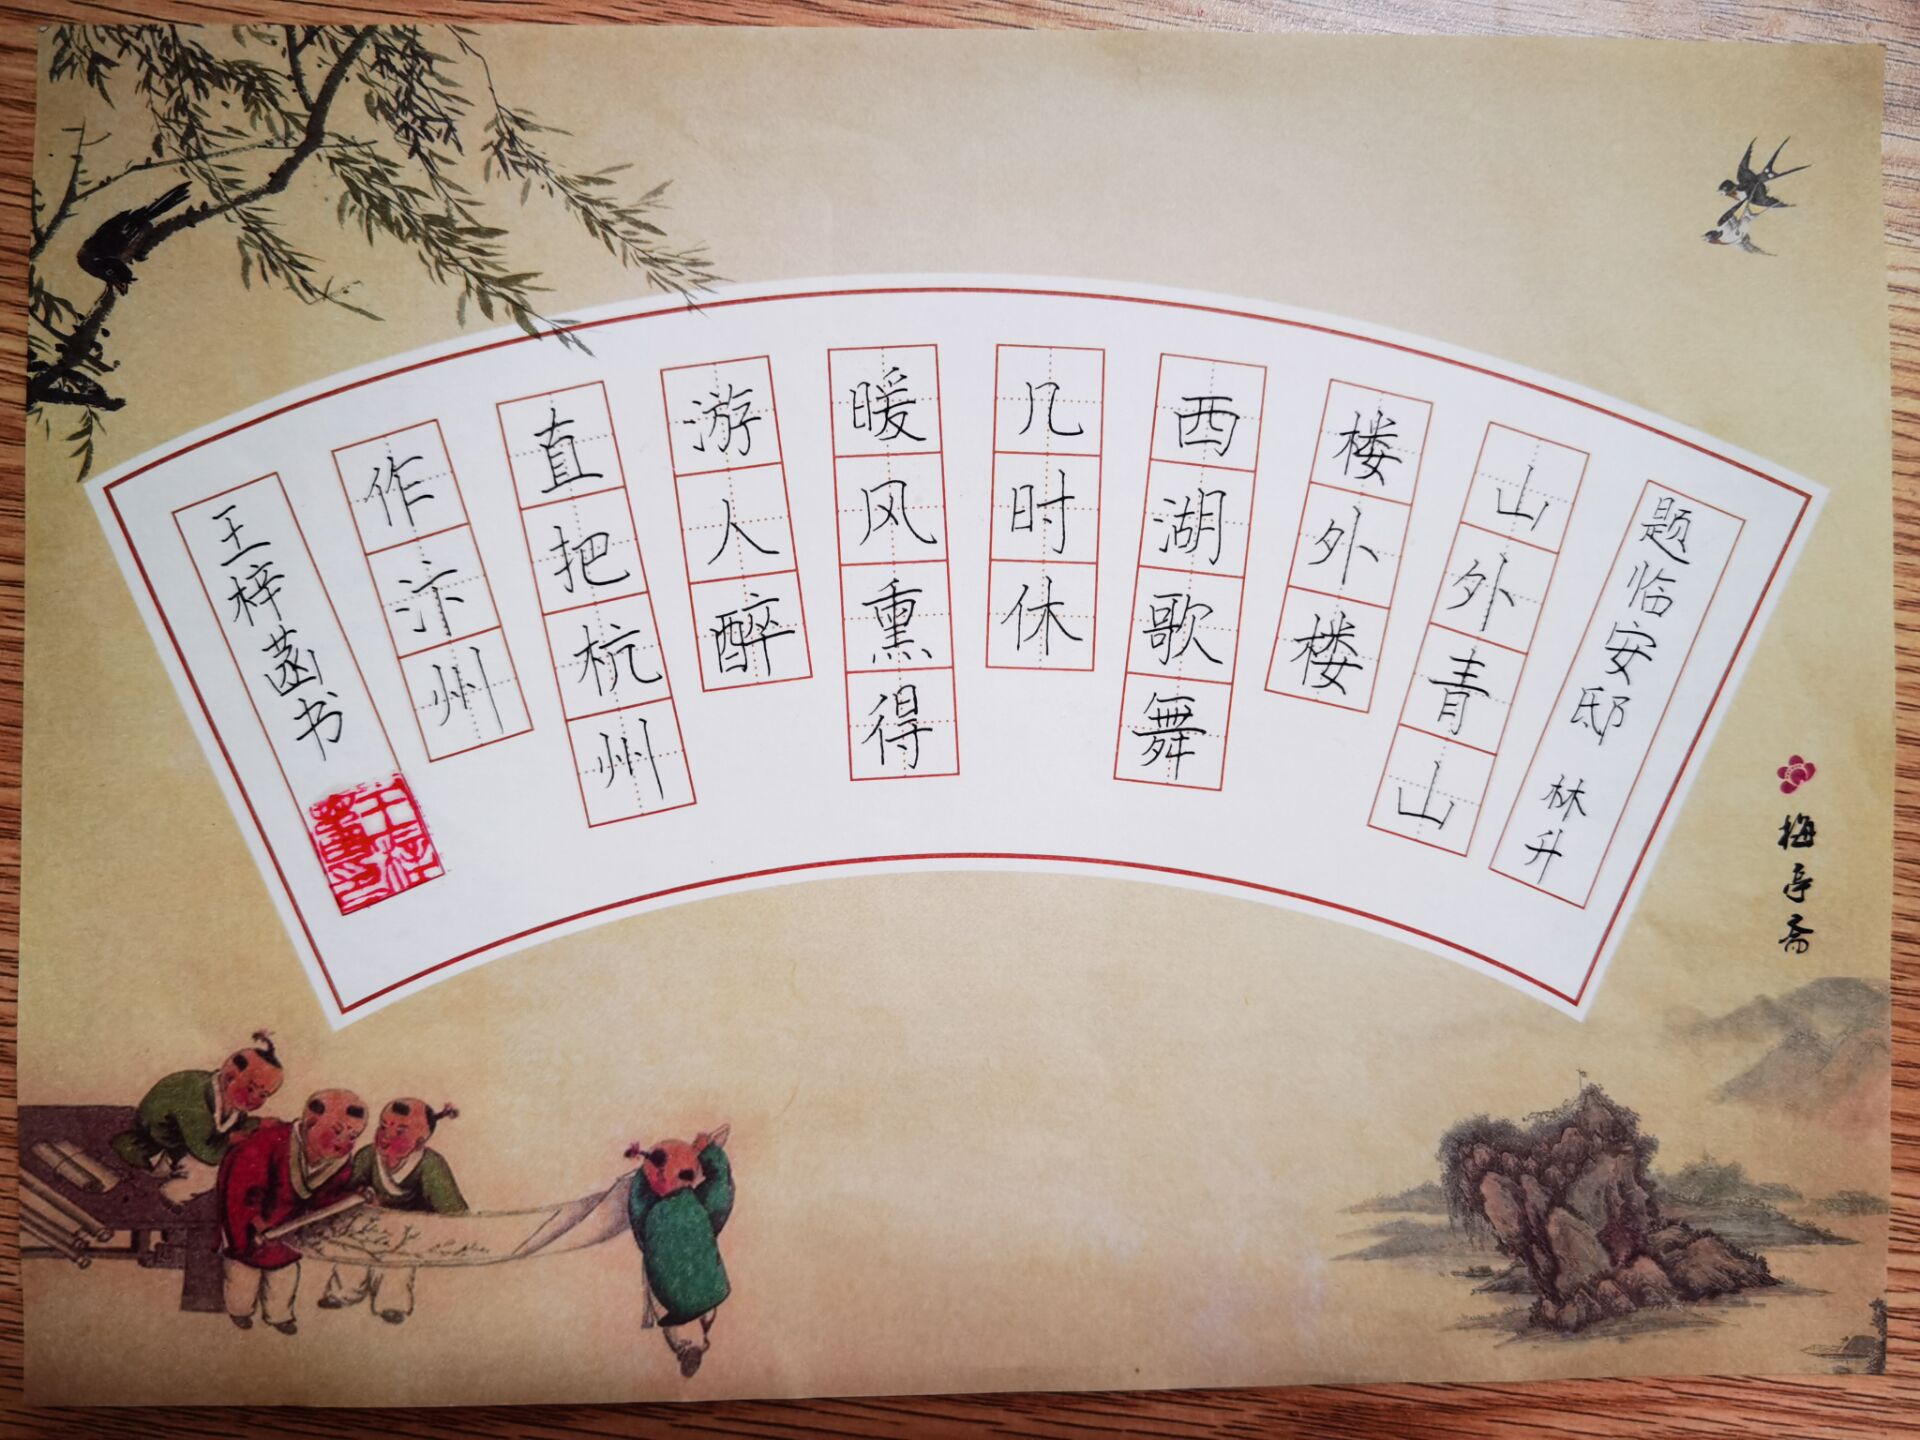 题临安邸 林升
山外青山
楼外楼
西湖歌舞
几时休
暖风熏得
游人醉
直把杭州
作汴州
王梓菡书
梅亭斋